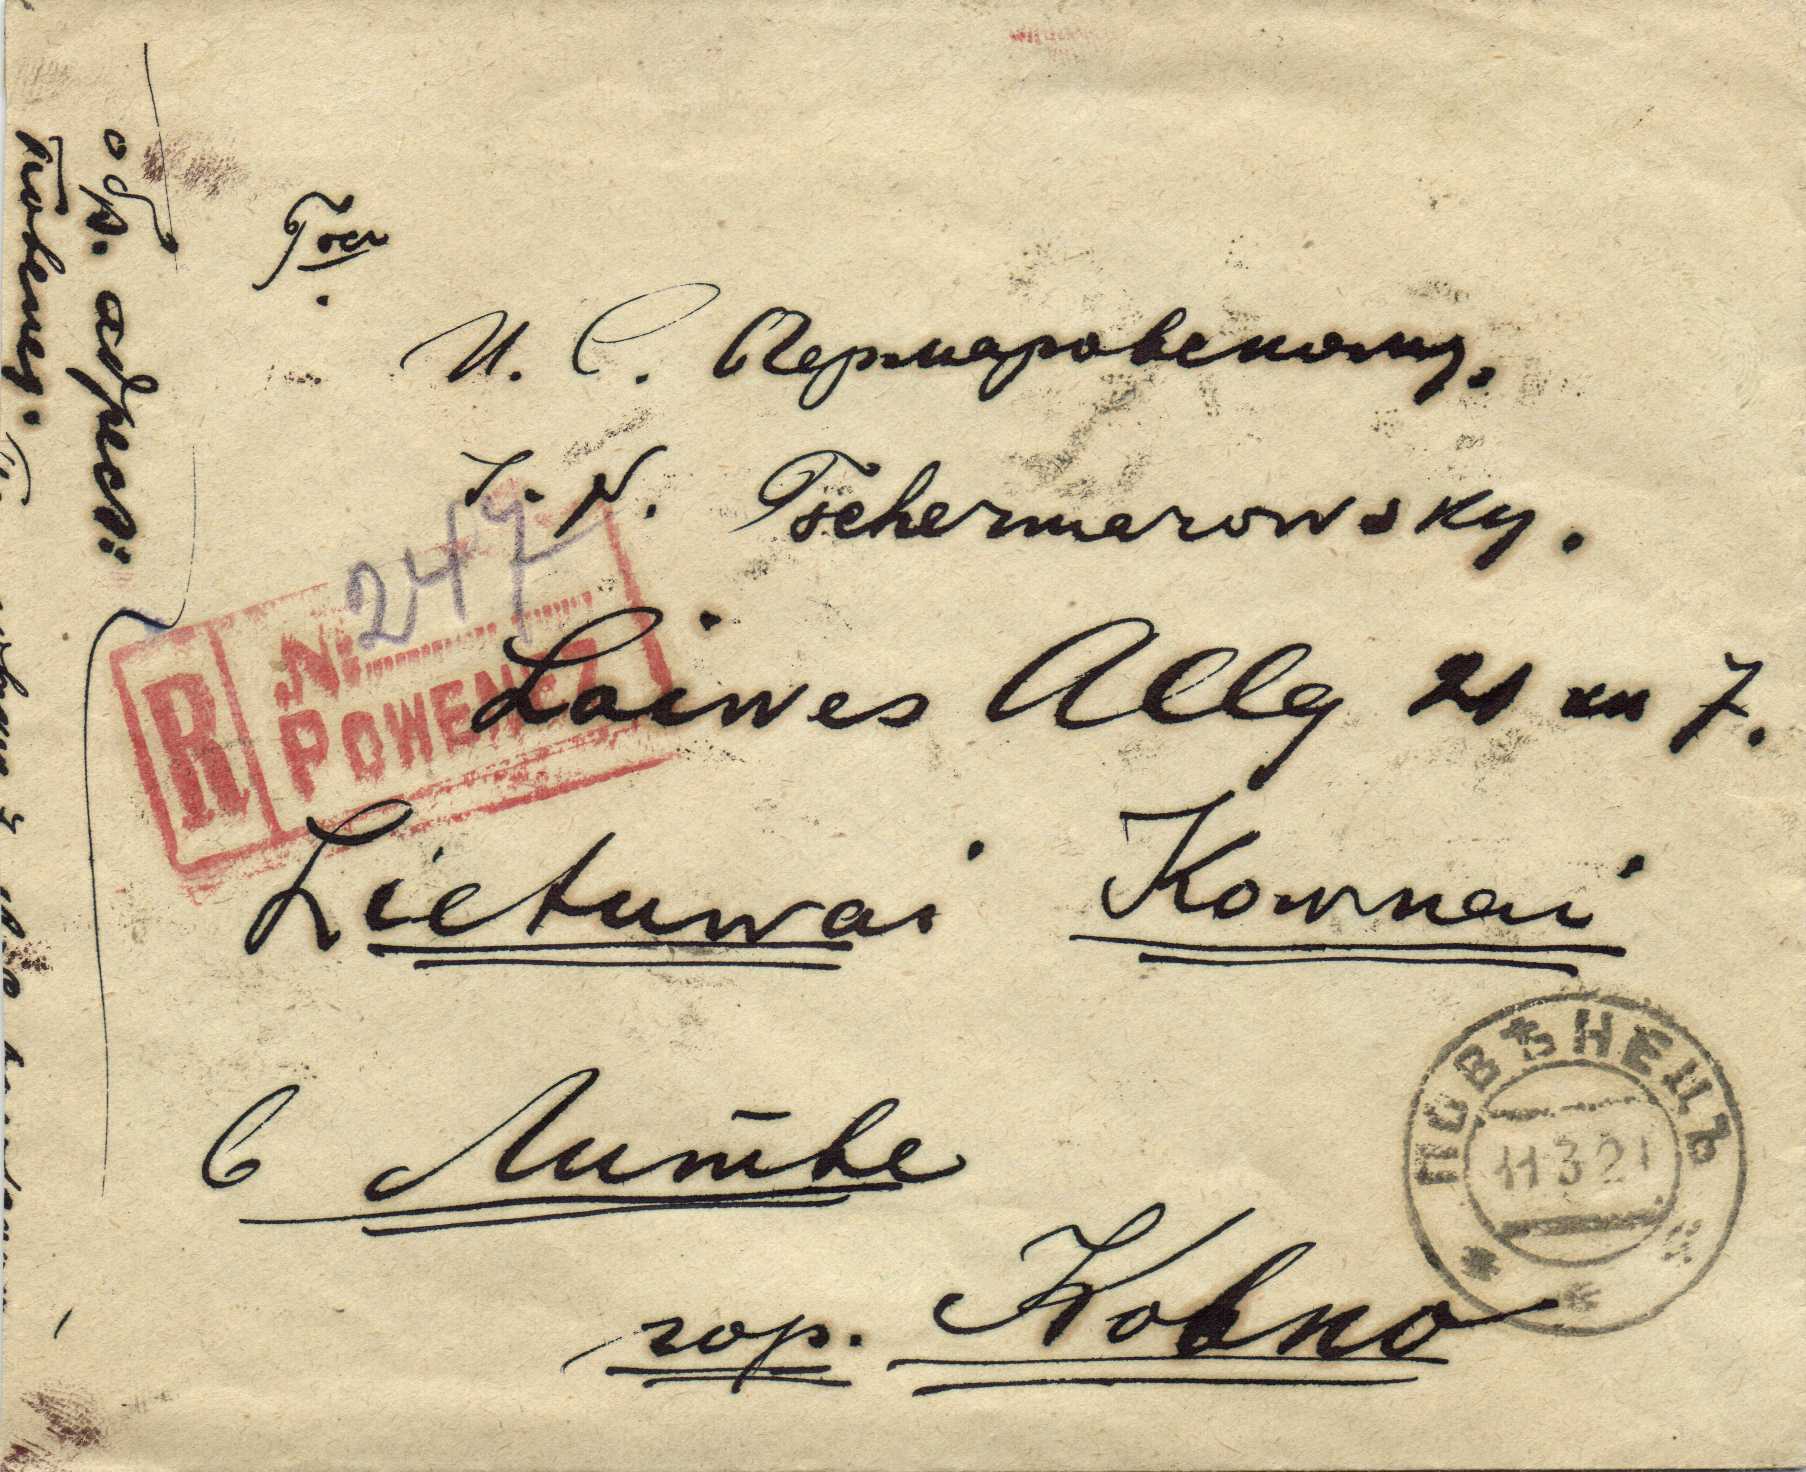 обр. адрес:
Повенец.
И. С. Чермаровскому.
J. S. Tschermarowsky.
247
R № POWENEZ
Laiwes Alleg 21 кв 7.
Lietuwai Kownai
в Литве
гор. Ковно
ПОВѢНЕЦЪ
11 3 21